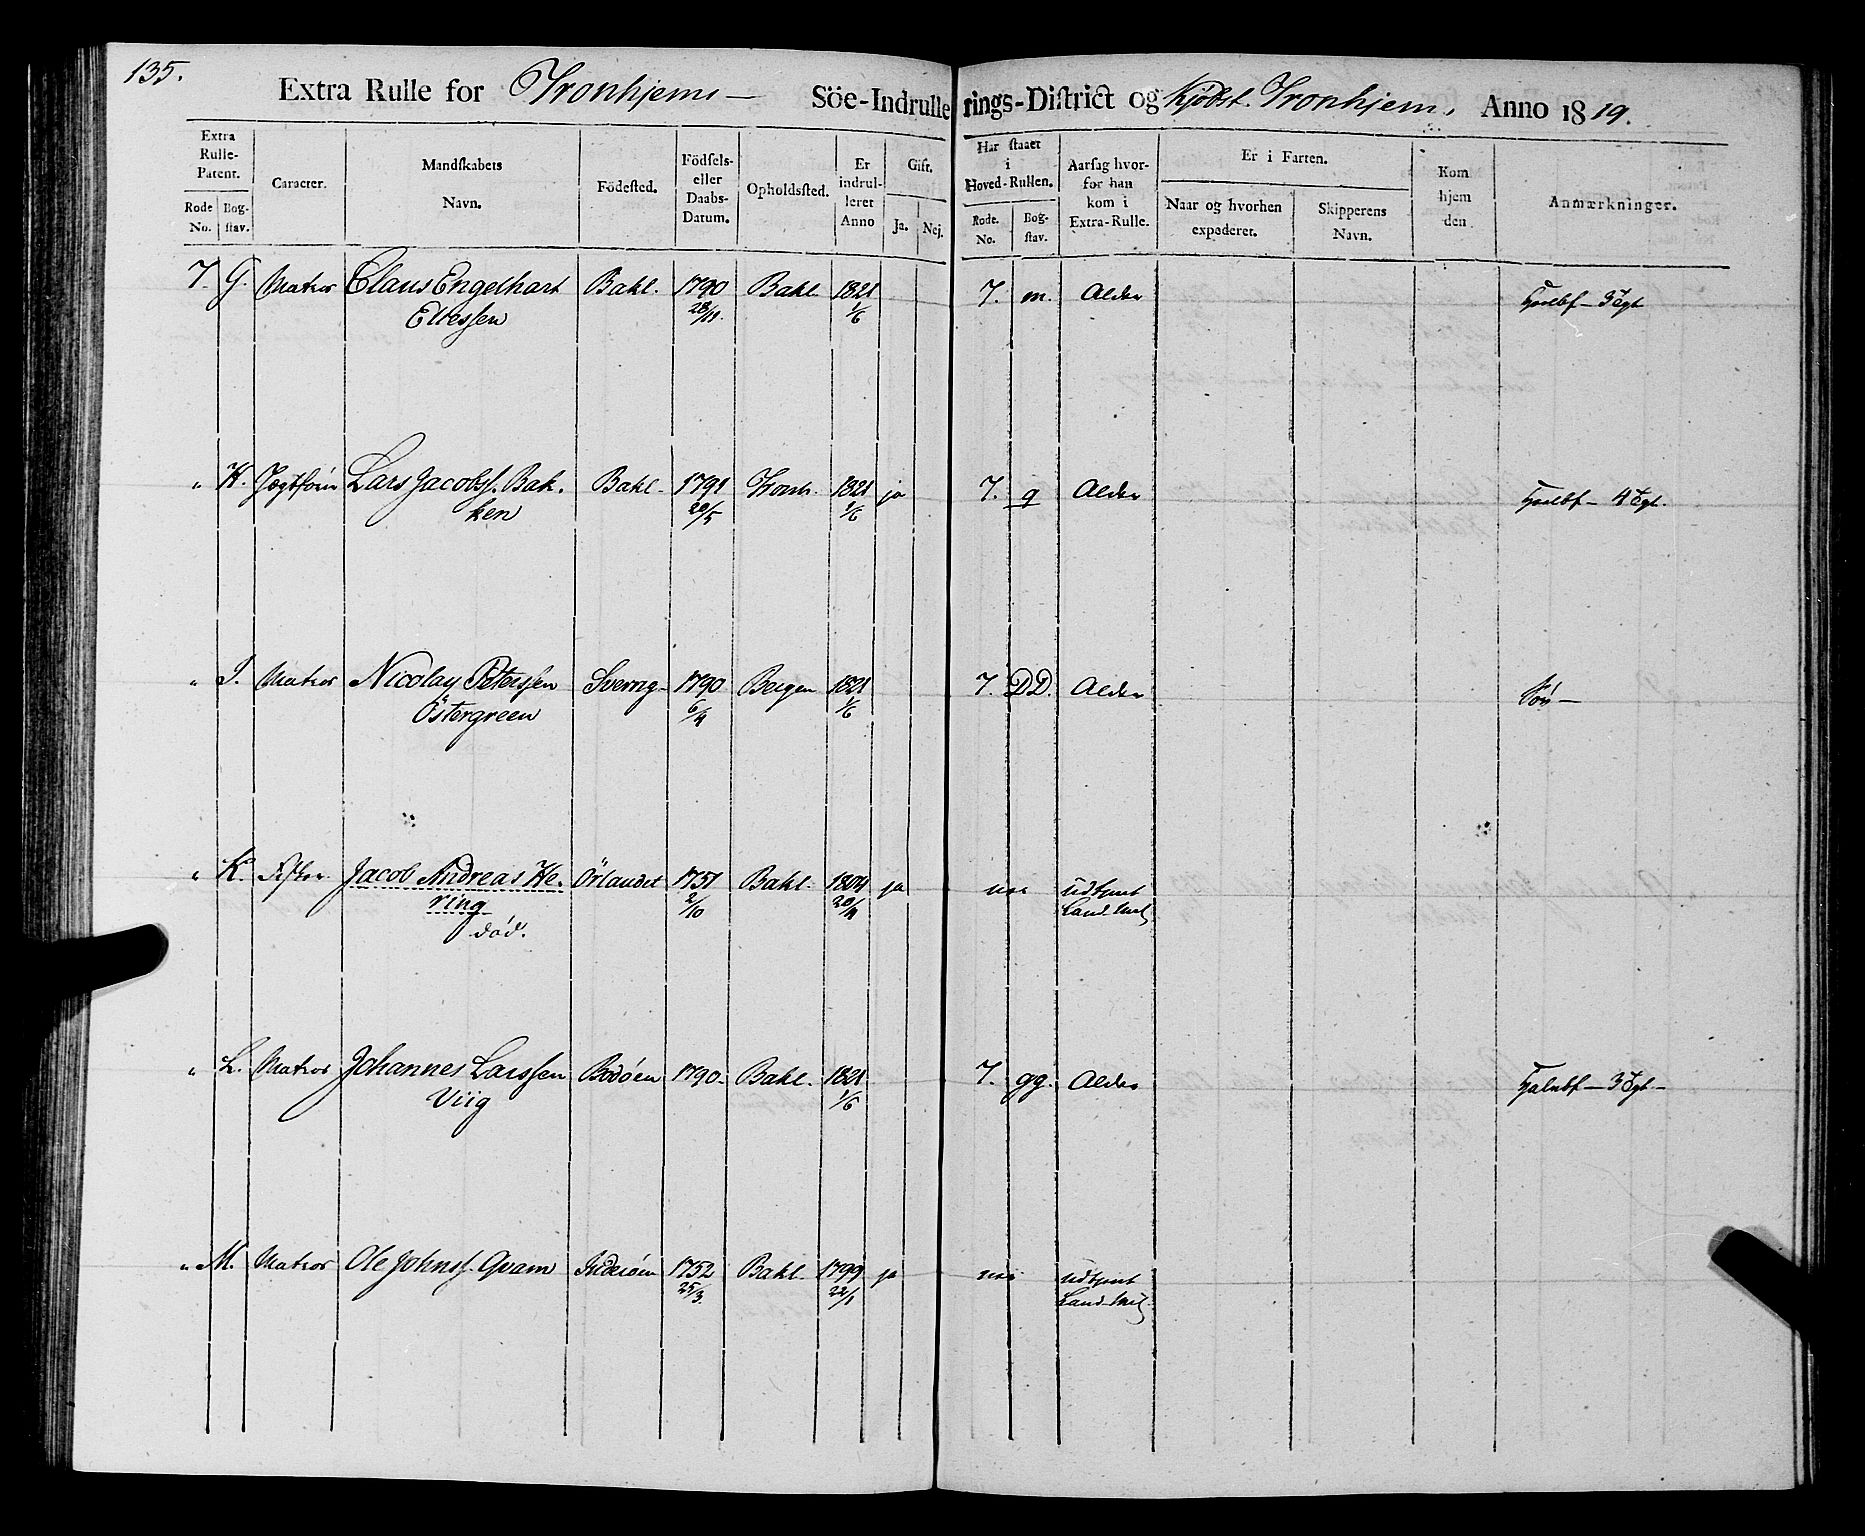 135.
Extra Rulle for Tronhjems — Söe-Indrullerings-District og Kjöbst. Tronhjem, Anno 1819.
Extra Rulle-Patent.
Rode No.
Bog-stav.
Caracter.
Mandskabets Navn.
Födested.
Födsels- eller Daabs-Datum.
Opholdssted.
Er indrulleret Anno
Gift.
Ja.
Nej.
Har staaet i Hoved-Rullen.
Rode. No.
Bog-stav.
Aarsag hvorfor han kom i Extra-Rulle.
Er i Farten.
Naar og hvorhen expederet.
Skipperens Navn.
Kom hjem den
Anmærkninger.
7. G. Matros Claus Engelhart Bakl. 1790 Bakl. 1821 7. m. Alder 3 Tgt
Ellefsen 28/11. 1/6
" H. Jægtførin Lars Jacobs. Bak- Bakl. 1791 Tronh. 1821 ja 7. q Alder 4 Tgt.
ken 20/5 1/6
" I. Matros Nicolay Peterssen Sverrig 1790 Bergen 1821 7. DD. Alder
Östergreen 6/4 1/6
" K. Jacob Andreas He- Örlandet 1751 Bakl. 1804 ja udtjent
ring 2/10 20/4 Land-Mil
död.
" L. Matros Johannes Larssen Bodöen 1790. Bakl. 1821 7. gg. Alder 3 Tgt
Viig 1/6
" M. Matros Ole Johnss. Qvam Inderöen 1752 Bakl. 1799 ja udtjent
25/3. 22/1 Land-Mil